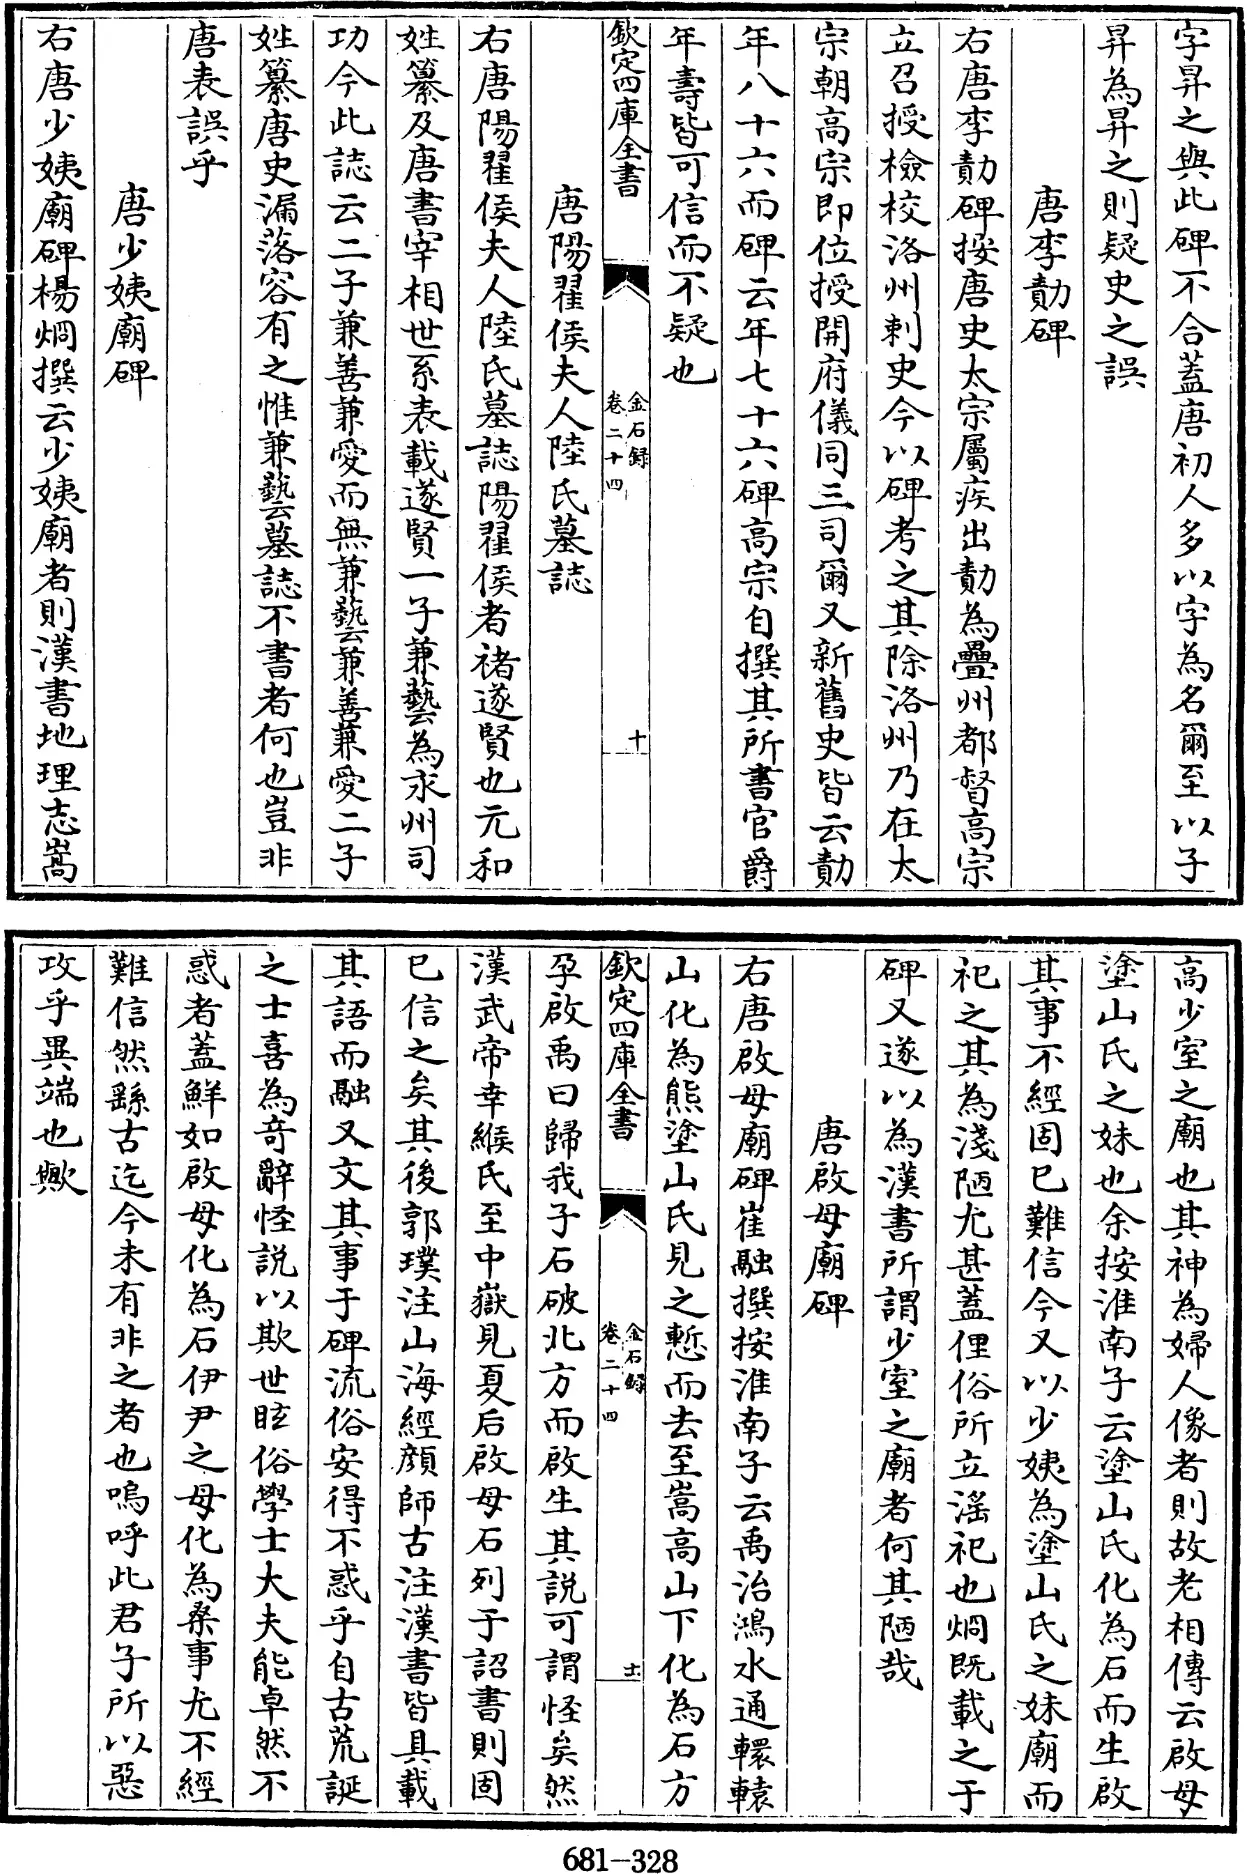 字昇之與此碑不合蓋唐初人多以字為名爾至以子
昇為昇之則疑史之誤
唐李勣碑
右唐李勣碑按唐史太宗屬疾出勣為疊州都督高宗
立召授檢校洛州刺史今以碑考之其除洛州乃在太
宗朝高宗即位授開府儀同三司爾又新舊史皆云勣
年八十六而碑云年七十六碑高宗自撰其所書官爵
年壽皆可信而不疑也
欽定四庫全書
金石錄
卷二十四
十
唐陽翟侯夫人陸氏墓誌
右唐陽翟侯夫人陸氏墓誌陽翟侯者禇遂賢也元和
姓纂及唐書宰相世系表載遂賢一子兼藝為永州司
功今此誌云二子兼善兼愛而無兼藝兼善兼愛二子
姓纂唐史漏落容有之惟兼藝墓誌不書者何也豈非
唐表誤乎
唐少姨廟碑
右唐少姨廟碑楊烱撰云少姨廟者則漢書地理志嵩
高少室之廟也其神為婦人像者則故老相傳云啟母
塗山氏之妹也余按淮南子云塗山氏化為石而生啟
其事不經固已難信今又以少姨為塗山氏之妹廟而
祀之其為淺陋尤甚蓋俚俗所立滛祀也烱既載之于
碑又遂以為漢書所謂少室之廟者何其陋哉
唐啟母廟碑
右唐啟母廟碑崔融撰按淮南子云禹治鴻水通轘轅
山化為熊塗山氏見之慙而去至嵩高山下化為石方
欽定四庫全書
金石錄
卷二十四
十一
孕啟禹曰歸我子石破北方而啟生其說可謂怪矣然
漢武帝幸緱氏至中嶽見夏后啟母石列于詔書則固
已信之矣其後郭璞注山海經顏師古注漢書皆具載
其語而融又文其事于碑流俗安得不惑乎自古荒誕
之士喜為奇辭怪說以欺世眩俗學士大夫能卓然不
惑者蓋鮮如啟母化為石伊尹之母化為桑事尤不經
難信然繇古迄今未有非之者也嗚呼此君子所以惡
攻乎異端也歟
681-328